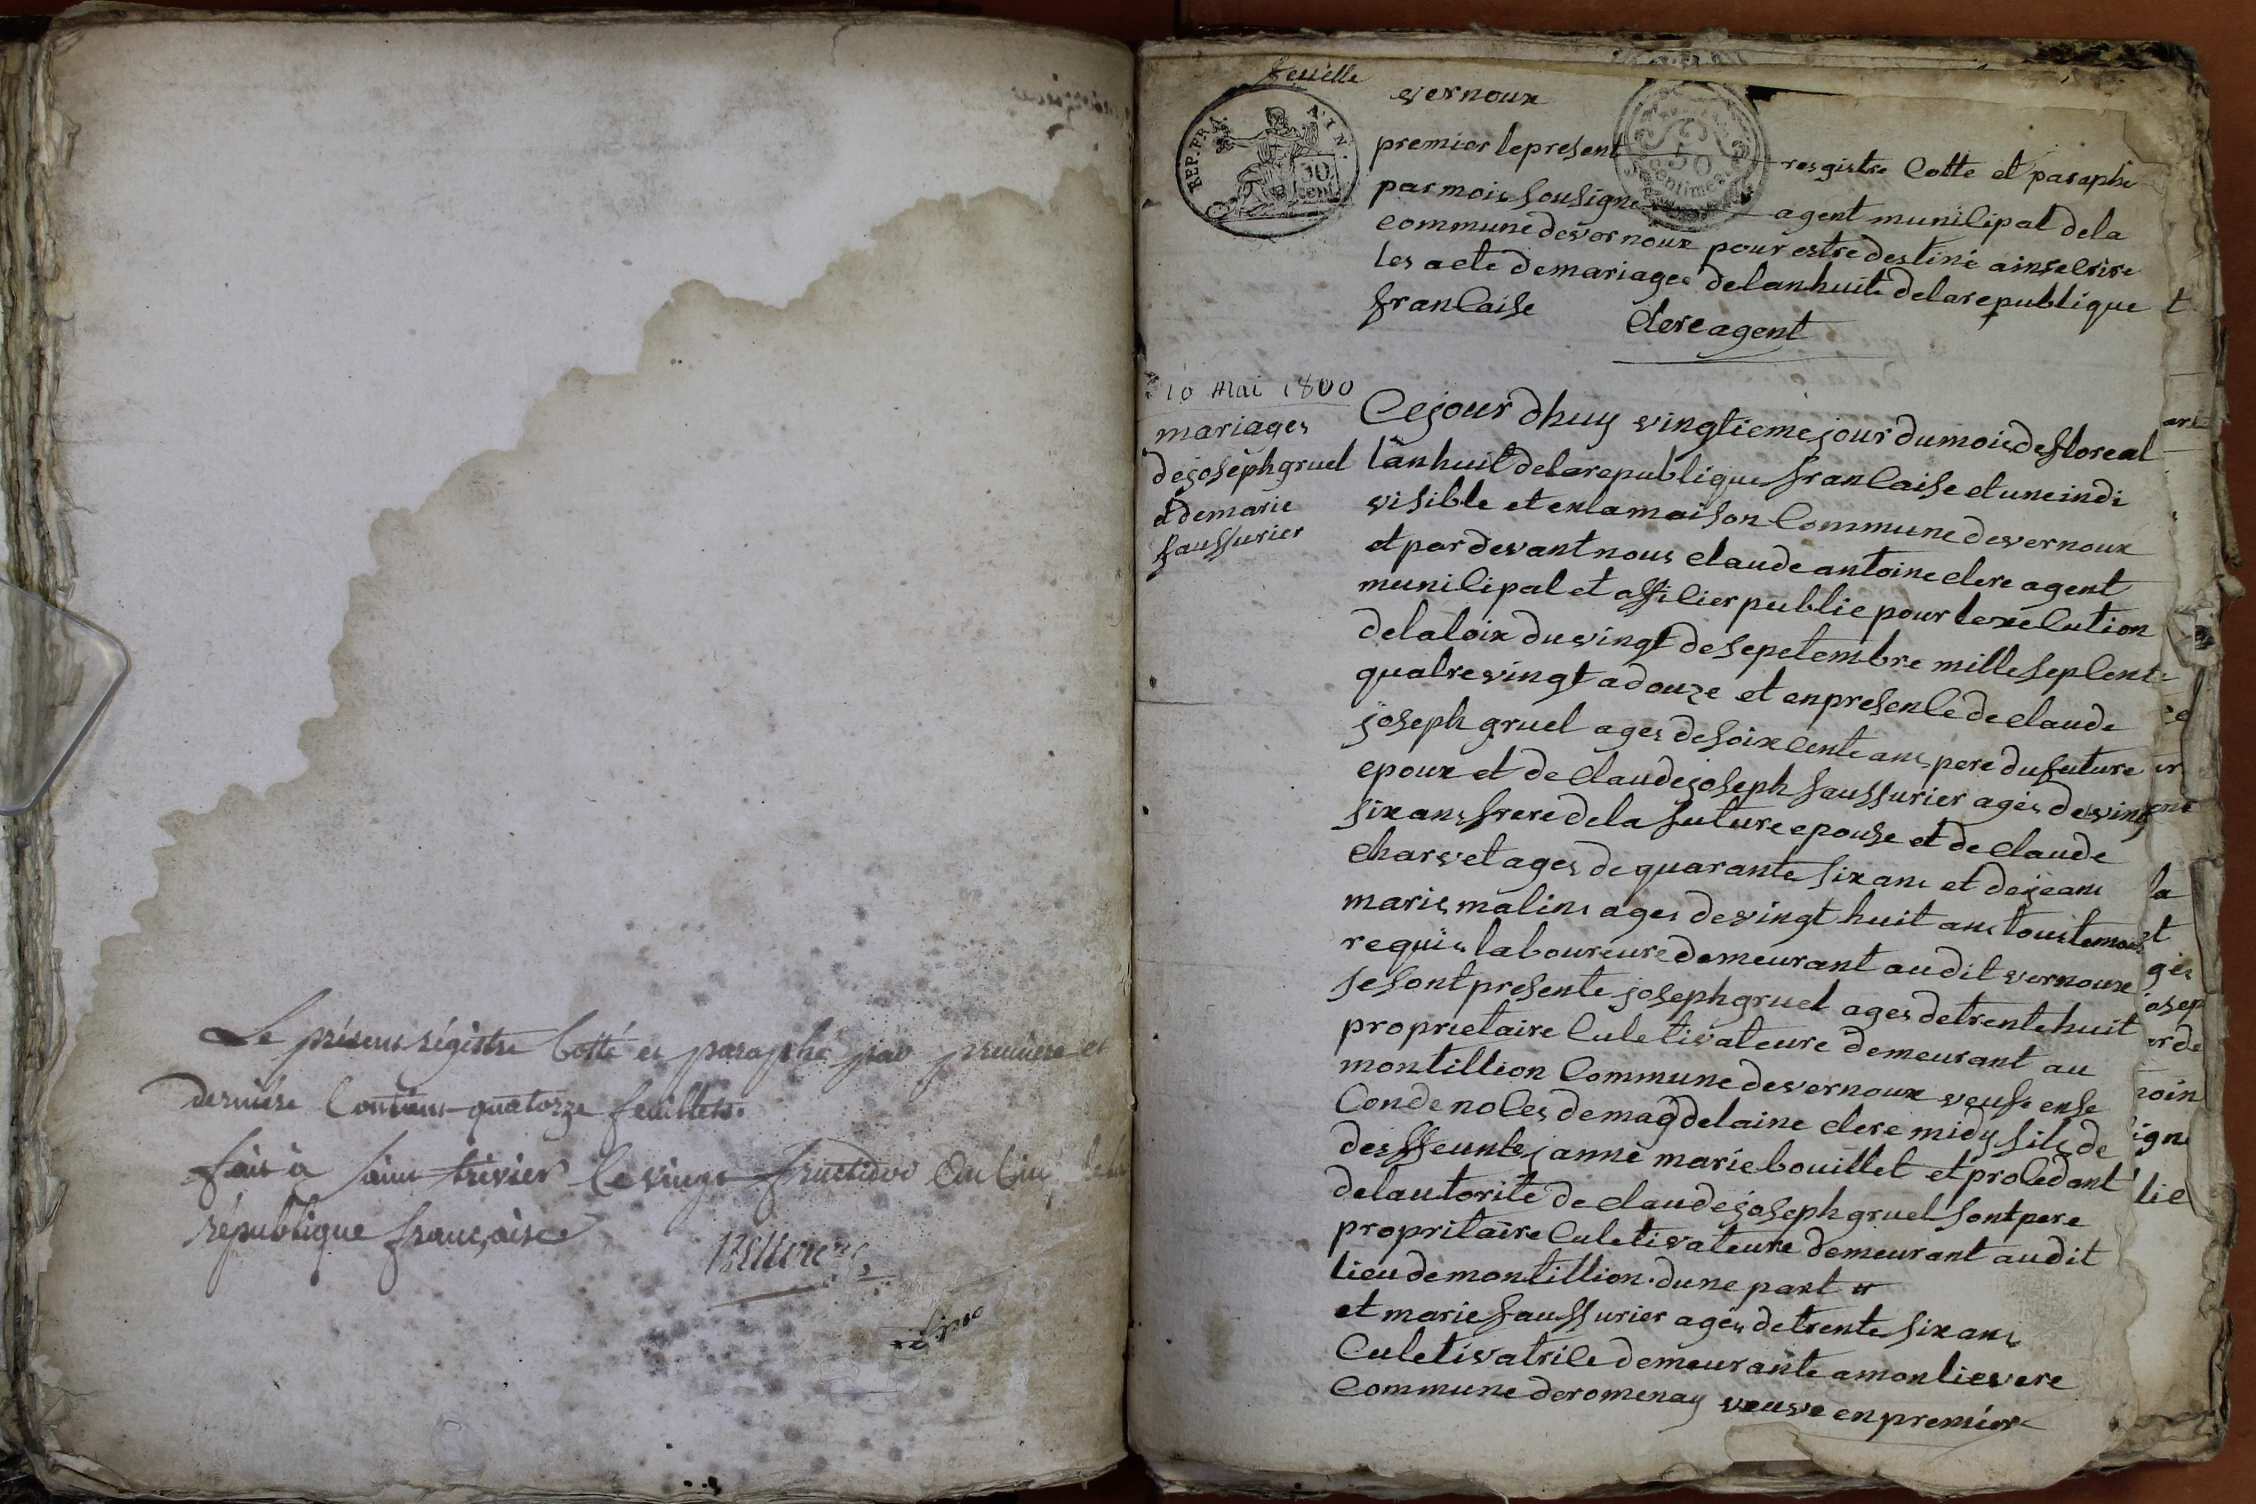 Le présent régistre Cotté et paraphé par premiere et
derniere Contient quatorze feuillets.
fait à saint trivier le vingt fructidor an Cinq de la
république française
feuille
vernoux
REP. FRA. AIN.
50 cent.
50 Centimes
premier le present resgistre Cotte et paraphe
par mois sousigne agent municipal dela
commune devernoux pour estre destiné ainscrire
les acte demariages delanhuit delarepublique
francaise
clere agent
10 Mai 1800
mariages
dejoseph gruel
et demarie
faussurier
Cejour dhuy vingtieme jour dumois defloreal
lanhuit delarepublique francaise et uneindi
visible et enlamaison Commune devernoux
et pardevant nous claude antoine clere agent
municipal et officier public pour lexécution
delaloix duvingt desepetembre mille septcent
quatrevingt adouze et enpresence declaude
joseph gruel ages desoixcente ans pere dufuture
epoux et de claudejoseph faussurier ages devingt
six ans frere dela future epouse et de claude
charvet ages de quarante six ans et dejean
marie malin ages devingt huit ans tous temoins
requis laboureure demeurant audit vernoux
se sont presente joseph gruel ages detrente huit
proprietaire Culetivateure demeurant au
montillion Commune devernoux veufe ense
Conde noces demagdelaine clere midy fils de
deffeunte janne marie bouillet et procedant
delautorite de claudejoseph gruel sont pere
propritaire Culetivateure demeurant audit
lieu demontillion. dune part
et marie faussurier ages detrente six ans
Culetivatrice demeurante amonlievere
Commune deromenay veuve enpremier